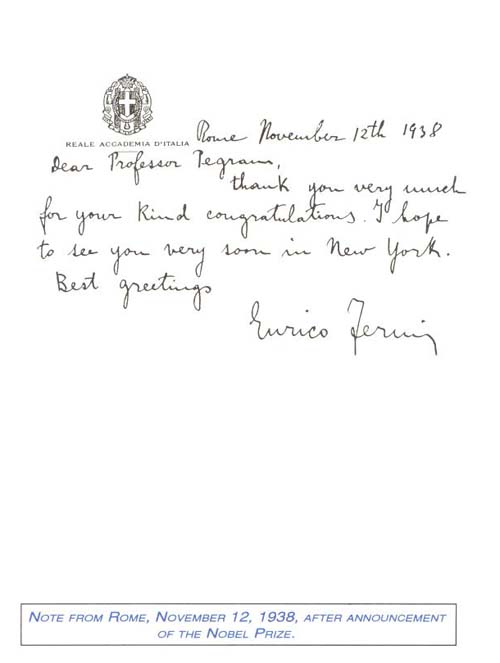 REALE ACCADEMIA D'ITALIA
Rome November 12th 1938
Dear Professor Pegram,
thank you very much
for your kind congratulations. I hope
to see you very soon in New York.
Best greetings
Enrico Fermi
NOTE FROM ROME, NOVEMBER 12, 1938, AFTER ANNOUNCEMENT
OF THE NOBEL PRIZE.